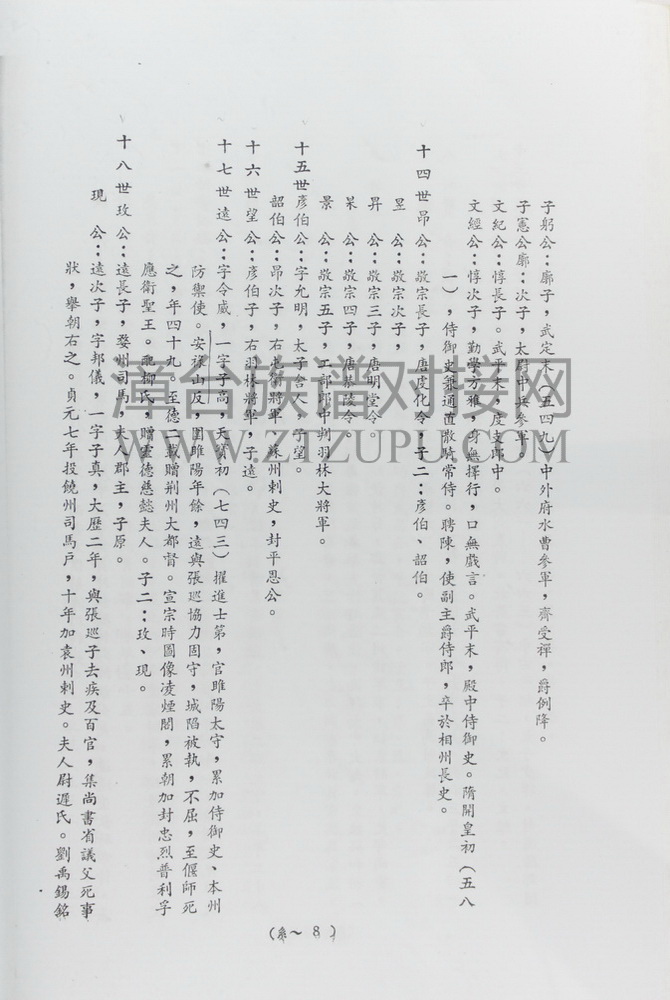 子躬公：廓子，武定末（五四九）中外府水曹參軍，齊受禪，爵例降。
子憲公廓：次子，太尉中兵參軍
文紀公：惇長子。武平末，度支郎中。
文經公：惇次子，勤學方雅，身無擇行，口無戲言。武平末，殿中侍御史。隋開皇初（五八
一），侍御史兼通直散騎常侍。聘陳，使副主爵侍郎，卒於相州長史。
十四世昂公：敬宗長子，唐虔化令，子二：彥伯、韶伯。
昱公：敬宗次子，
昇公：敬宗三子，唐明堂令。
杲公：敬宗四子，唐恭陵令。
景公：敬宗五子，工部郎中判羽林大將軍。
十五世彥伯公：字允明，太子舍人，子望。
韶伯公：昂次子，右屯衛將軍、蘇州刺史，封平恩公。
十六世望公：彥伯子，右羽林將軍，子遠。
十七世遠公：字令威，一字子高，天寶初（七四三）擢進士第，官睢陽太守，累加侍御史、本州
防禦使。安祿山反，圍睢陽年餘，遠與張巡協力固守，城陷被執，不屈，至偃師死
之，年四十九。至德二載贈荆州大都督。宣宗時圖像凌煙閣，累朝加封忠烈普利孚
應衛聖王。配柳氏，贈靈德慈懿夫人。子二：玫、現。
十八世玫公：遠長子，婺州司馬，夫人郡主，子原。
現公：遠次子，字邦儀，一字子真，大歷二年，與張巡子去疾及百官，集尚書省議父死事
狀，舉朝右之。貞元七年投饒州司馬戶，十年加袁州刺史。夫人尉遲氏。劉禹錫銘
（系～8）
漳台族谱对接网
WWW.ZTZUPU.COM